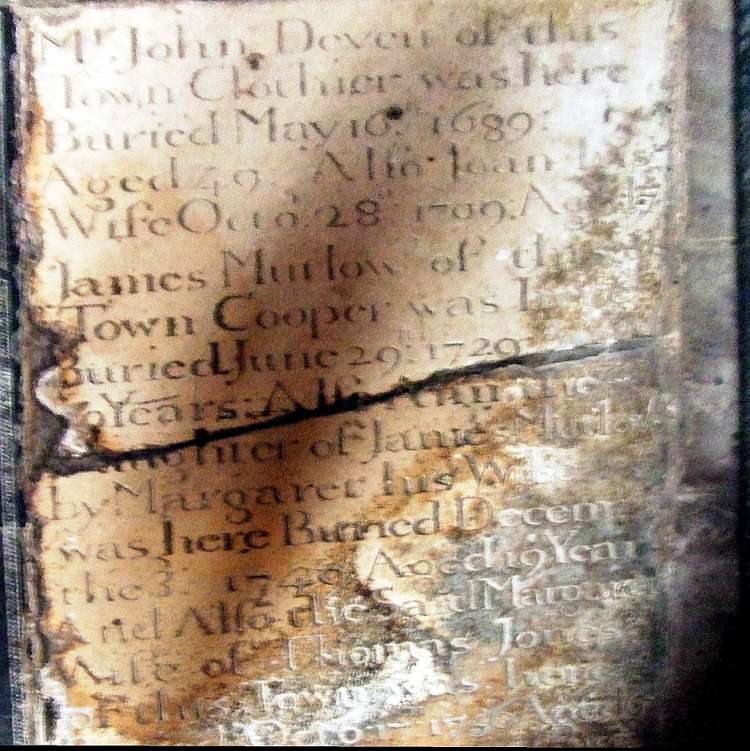 Mr. John Deven of this
Town Clothier was here
Buried May 16: 1689:
Aged 49. Also Joan his
Wife Octo: 28: 1709: Ag
James Murlow of this
Town Cooper was
Buried June 29: 1729
Years: Also Ann the
Daughter of James Murlow
by Margaret his Wife
was here Buried Decem
the 3: 1740 Aged 19 Year
And Also the Said Margaret
Wife of Thomas Jones
of this Town was here
Octo 1756 Aged